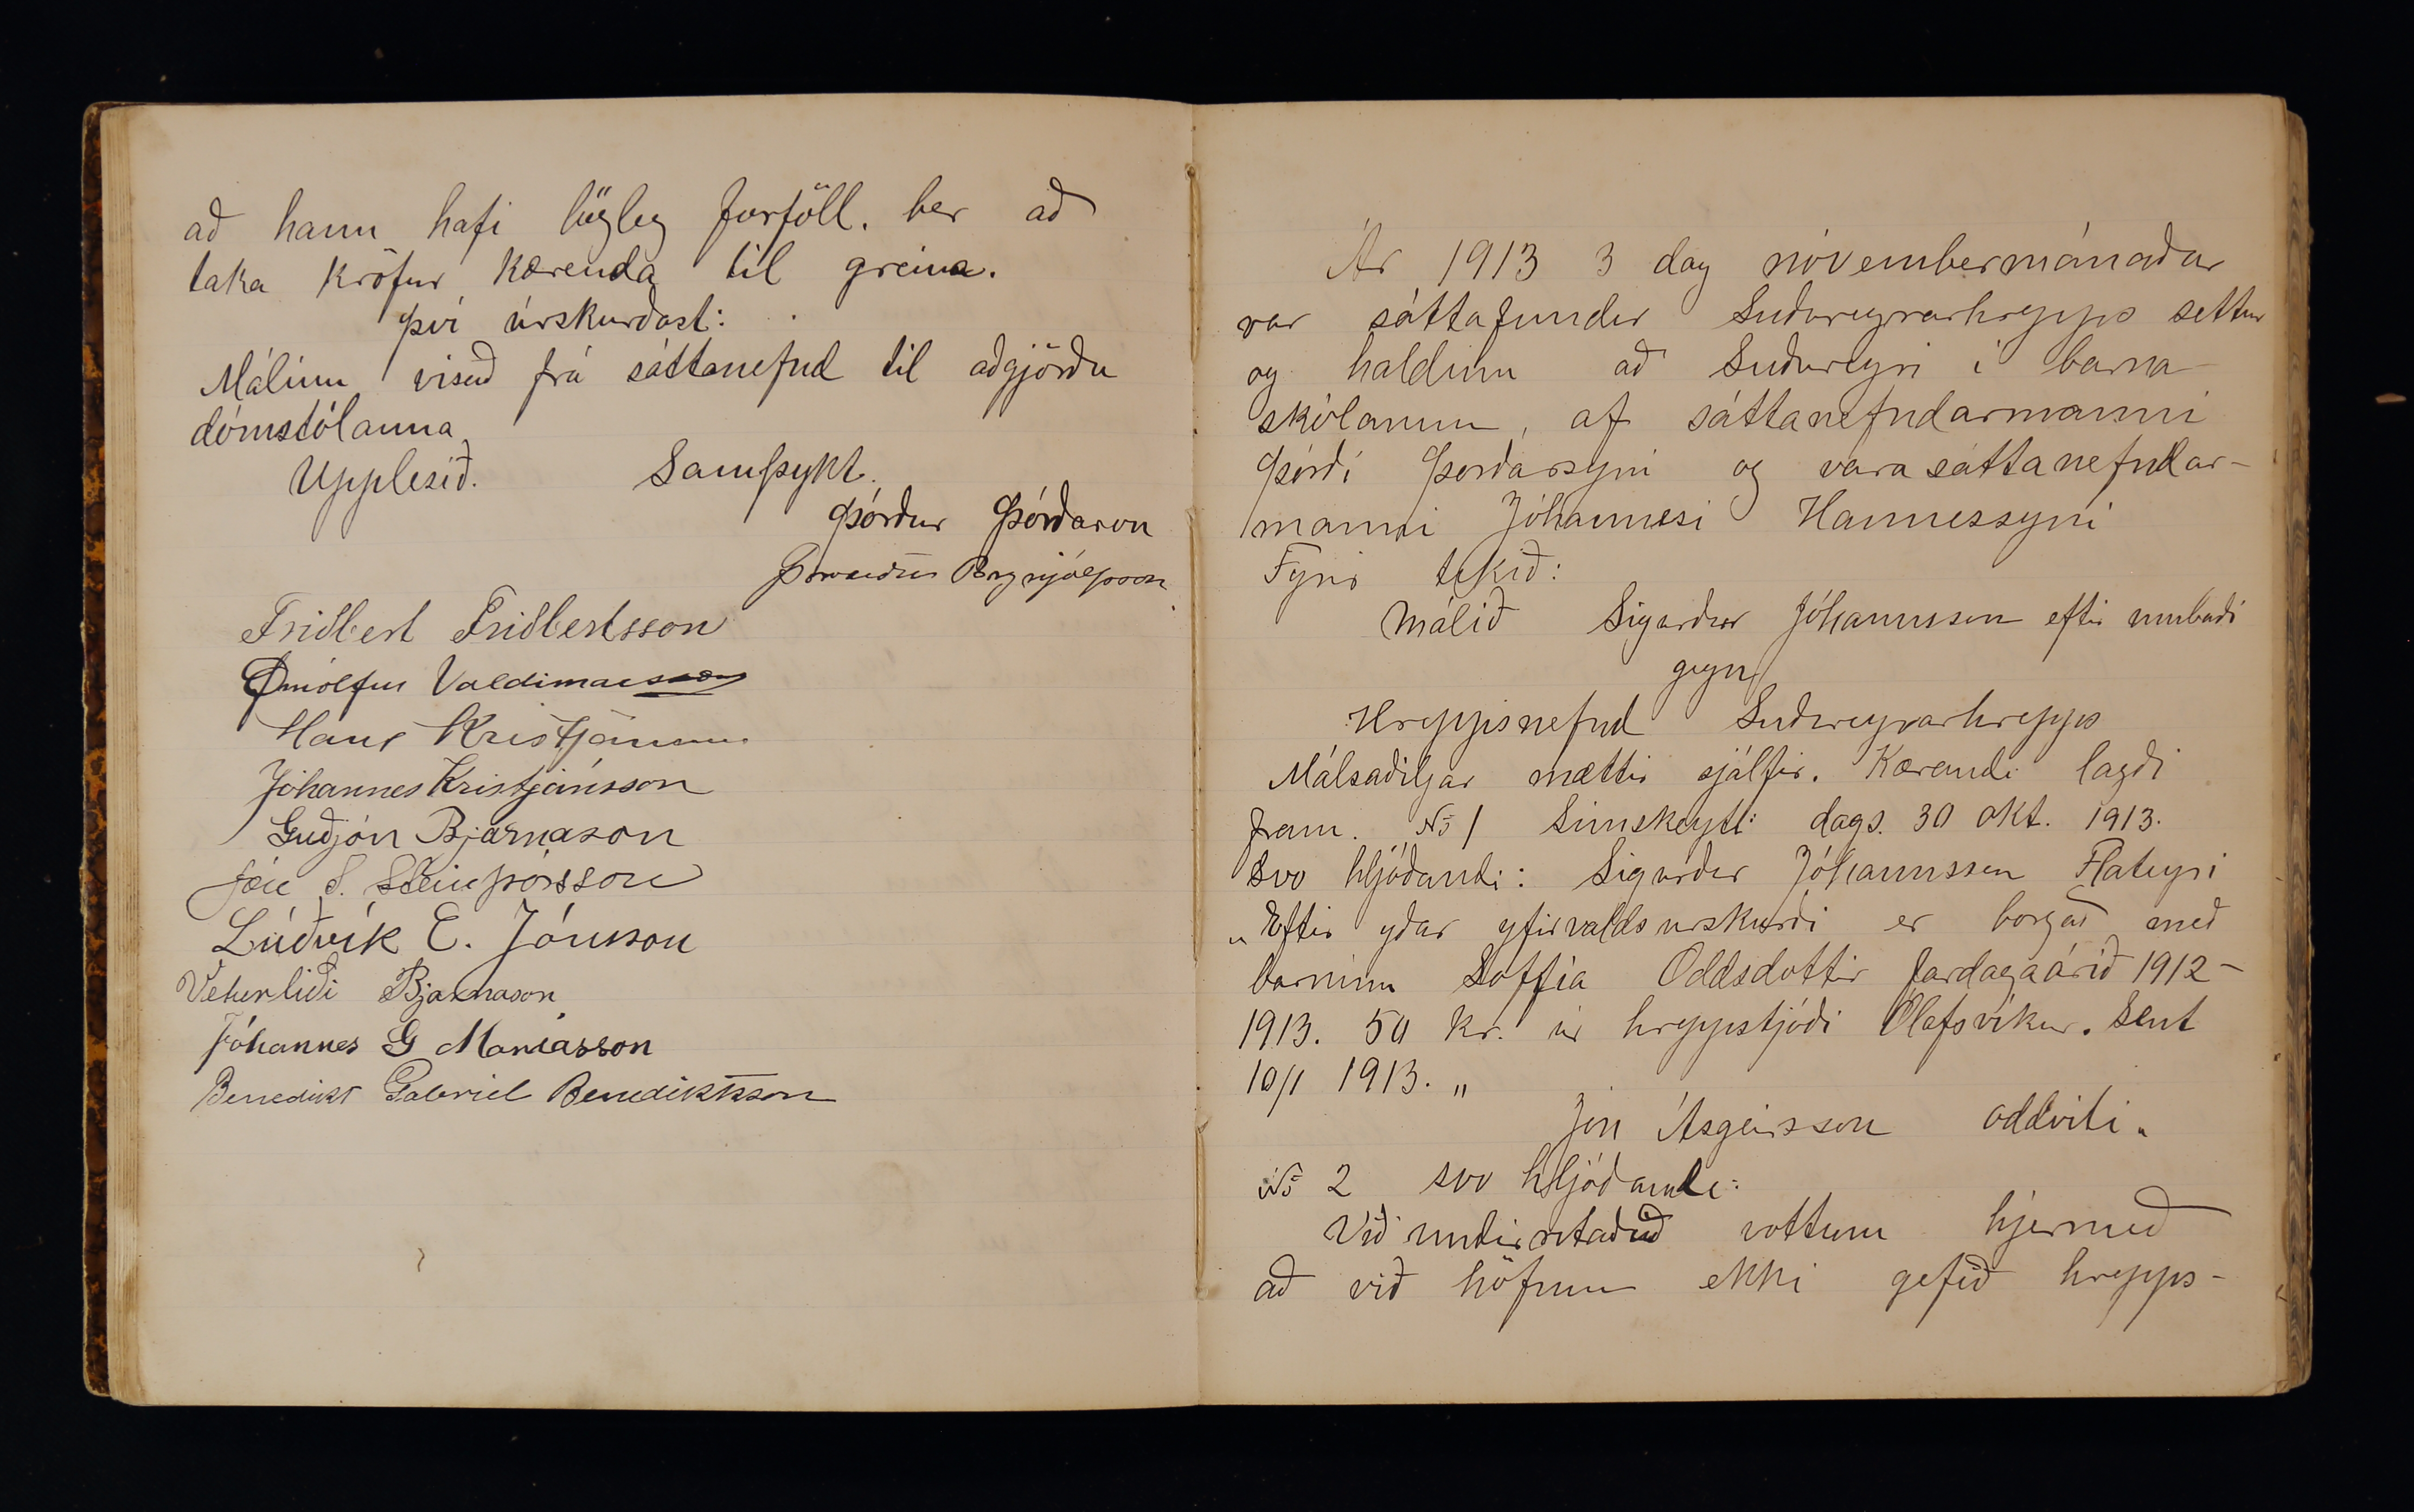 að hann hafi lögleg forföll. ber að
taka kröfur kærenda til greina.
því úrskurðast:
Málinu visað frá sáttanefnd til aðgjörðu
dómstólanna
Upplesið. Samþykt.
Þórður Þórðarson
Þorvaldur Brynjólfsson
Friðbert Friðbertsson
Örnólfur Valdimarsson
Hans Kristjánsson
Jóhannes Kristjánsson
Guðjón Bjarnason
Jón S. Steinþórsson
Lúðvík E. Jónsson
Veturliði Bjarnason
Jóhannes G Maríasson
Benedikt Gabríel Benediktsson
Ár 1913 3 dag nóvembermánaðar
var sáttafundur Suðureyrarhrepps settur
og haldinn að Suðureyri í barna-
skólanum, af sáttanefndarmanni
Þórði Þorðarsyni og varasáttanefndar-
manni Jóhannesi Hannessyni
Fyrir tekið:
Málið Sigurður Jóhannsson eftir umboði
gegn
Hreppsnefnd Suðureyrarhrepps
Málsaðiljar mættir sjálfir. Kærandi lagði
fram. No 1 Símskeyti dags. 30 okt. 1913.
svo hljóðandi: Sigurður Jóhannsson Flateyri
„Eftir yðar yfirvaldsurskurði er borgað með
barninu Soffía Oddsdottir fardagaárið 1912-
1913. 50 kr. úr hreppsjóði Ólafsvíkur. Sent
10/1 1913.„
Jón Ásgeirsson oddviti.
No 2 svo hljóðandi:
Við undirritaðið vottum hjermeð
að við höfum ekki gefið hrepps-